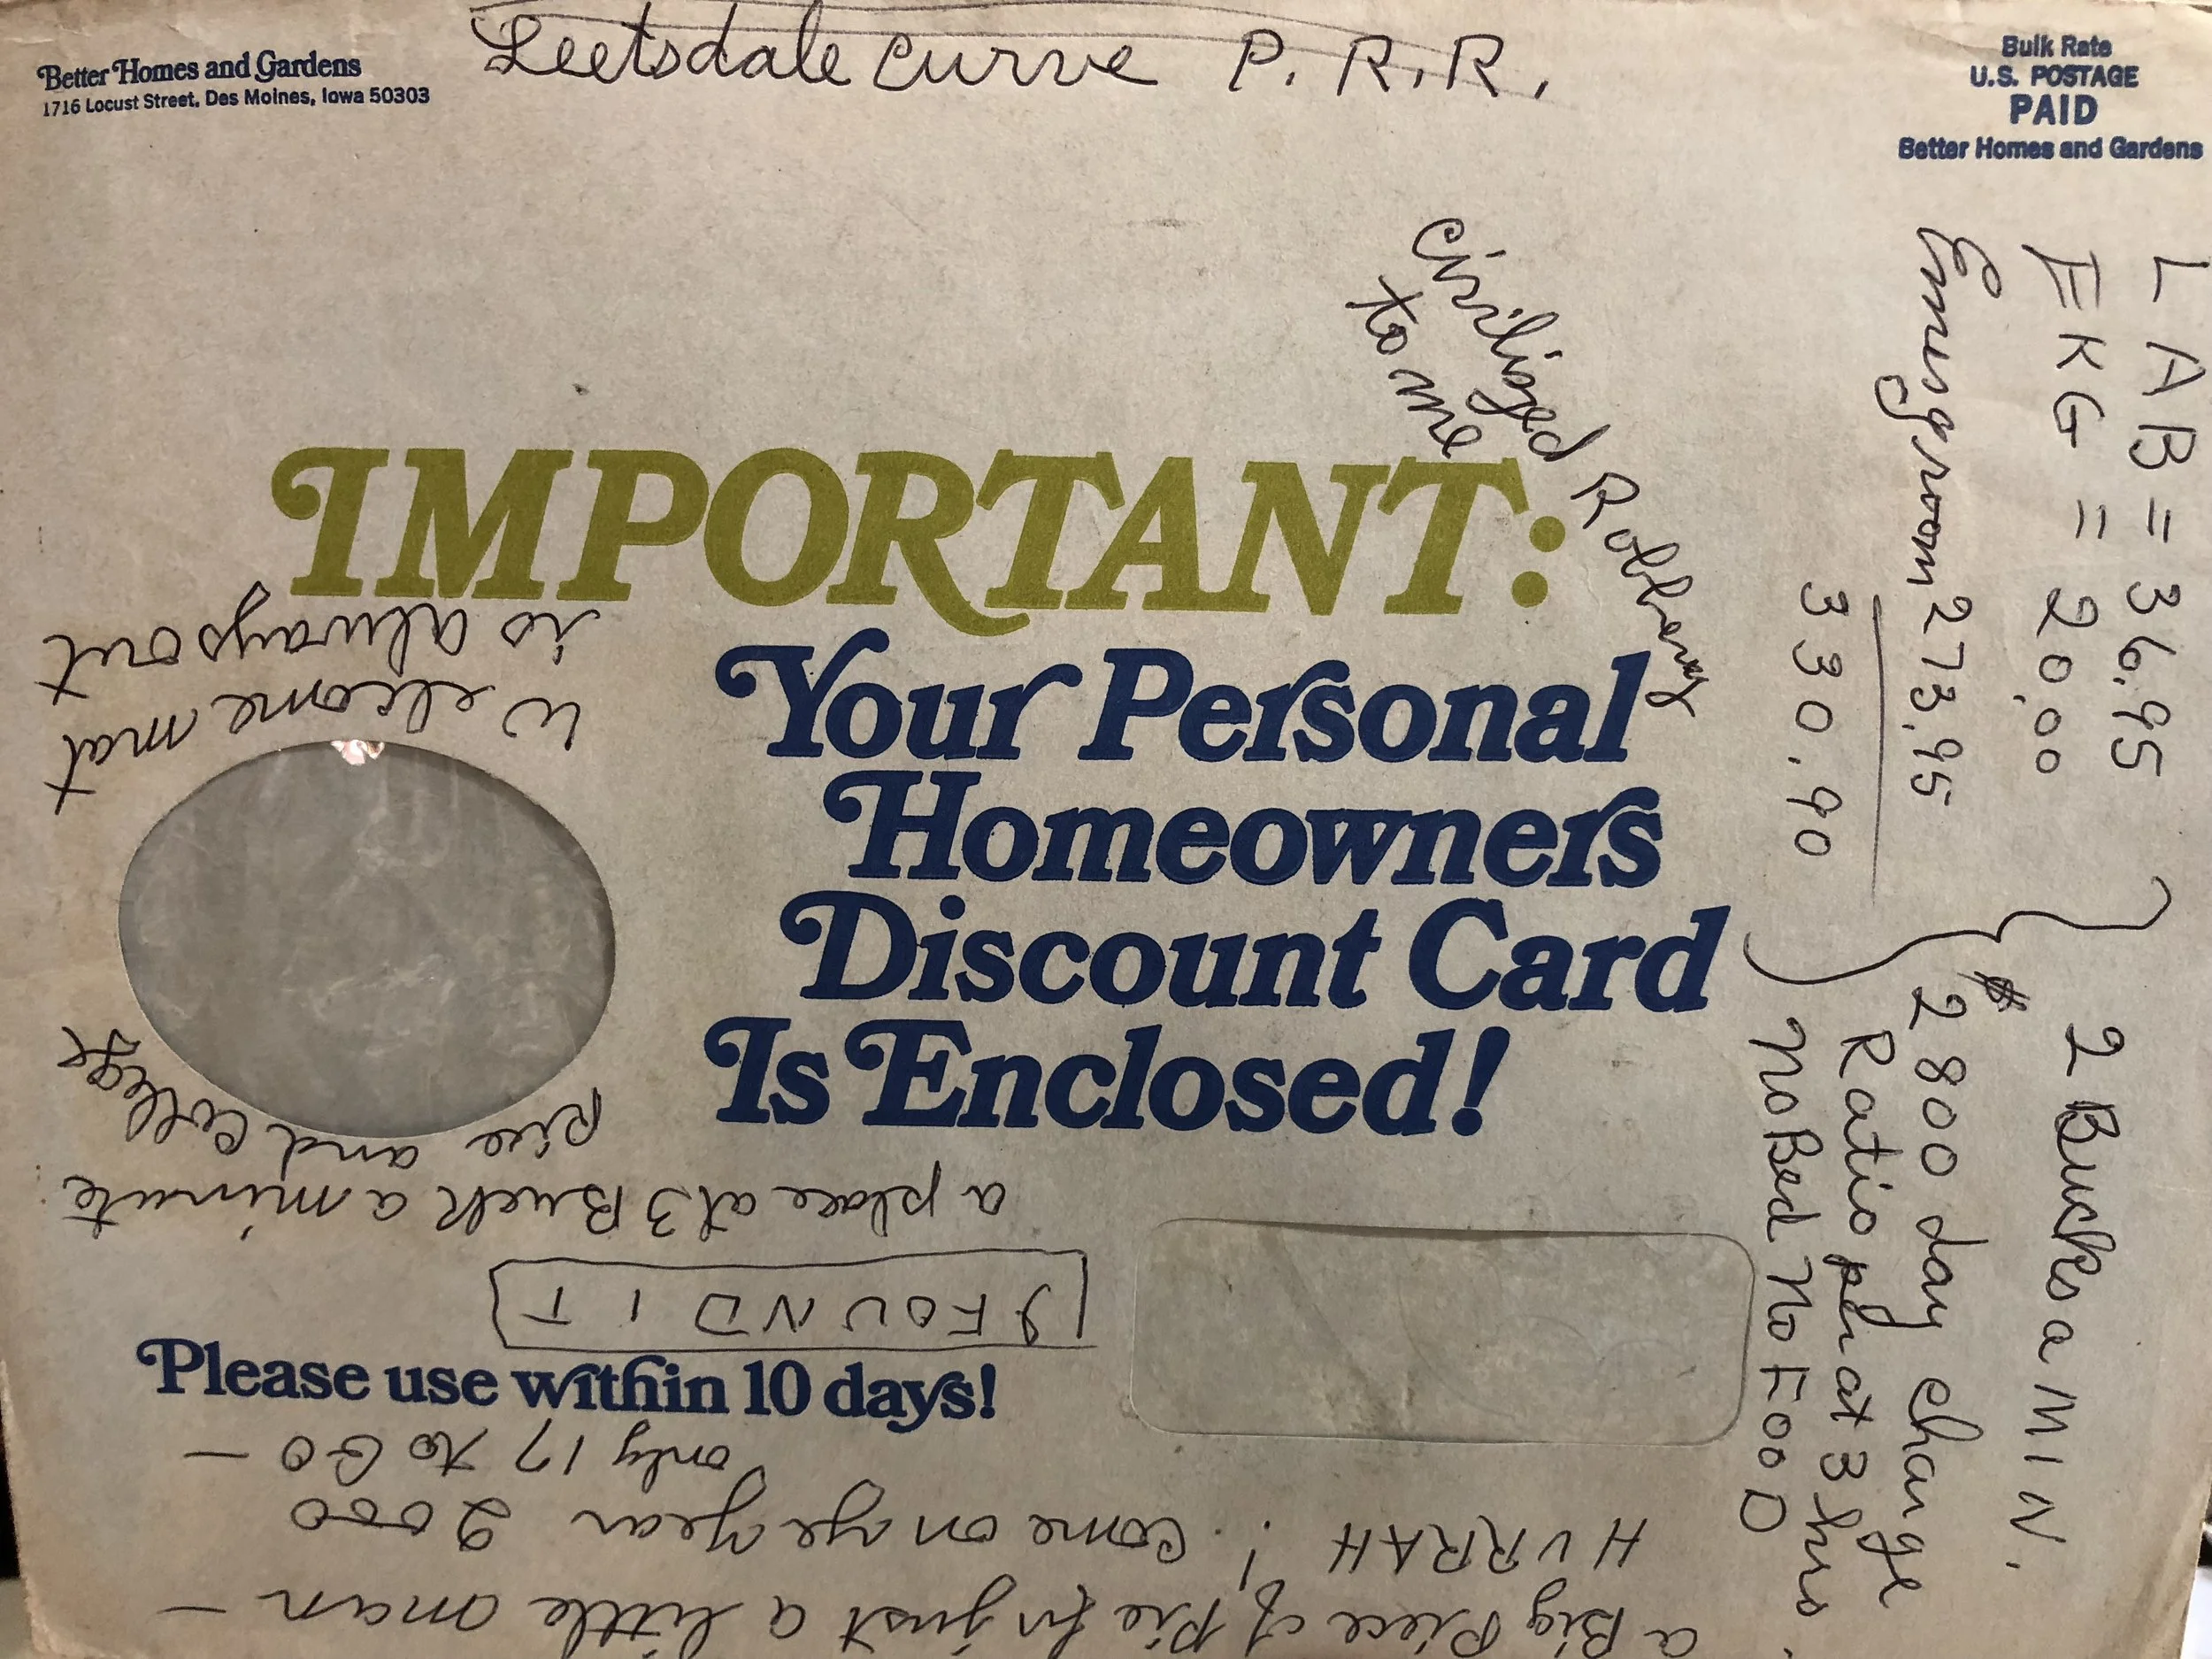 Leetsdale Curve P. R. R.
Better Homes and Gardens
1716 Locust Street, Des Moines, Iowa 50303
Bulk Rate
U.S. POSTAGE
PAID
Better Homes and Gardens
Civilized Robbery
to me
LAB = 36.95
EKG = 20.00
Emergroom 273.95
330.90
2 Bucks a MIN.
$2800 day charge
Ratio per at 3 hrs
No Bed No FOOD
IMPORTANT:
Your Personal
Homeowners
Discount Card
Is Enclosed!
Please use within 10 days!
a Big Piece of Pie for just a little man -
HURRAH ! Come on ye year 2000
only 17 to GO -
I FOUND IT
a place at 3 Buck a minute
and College
Welcome mat
is always out